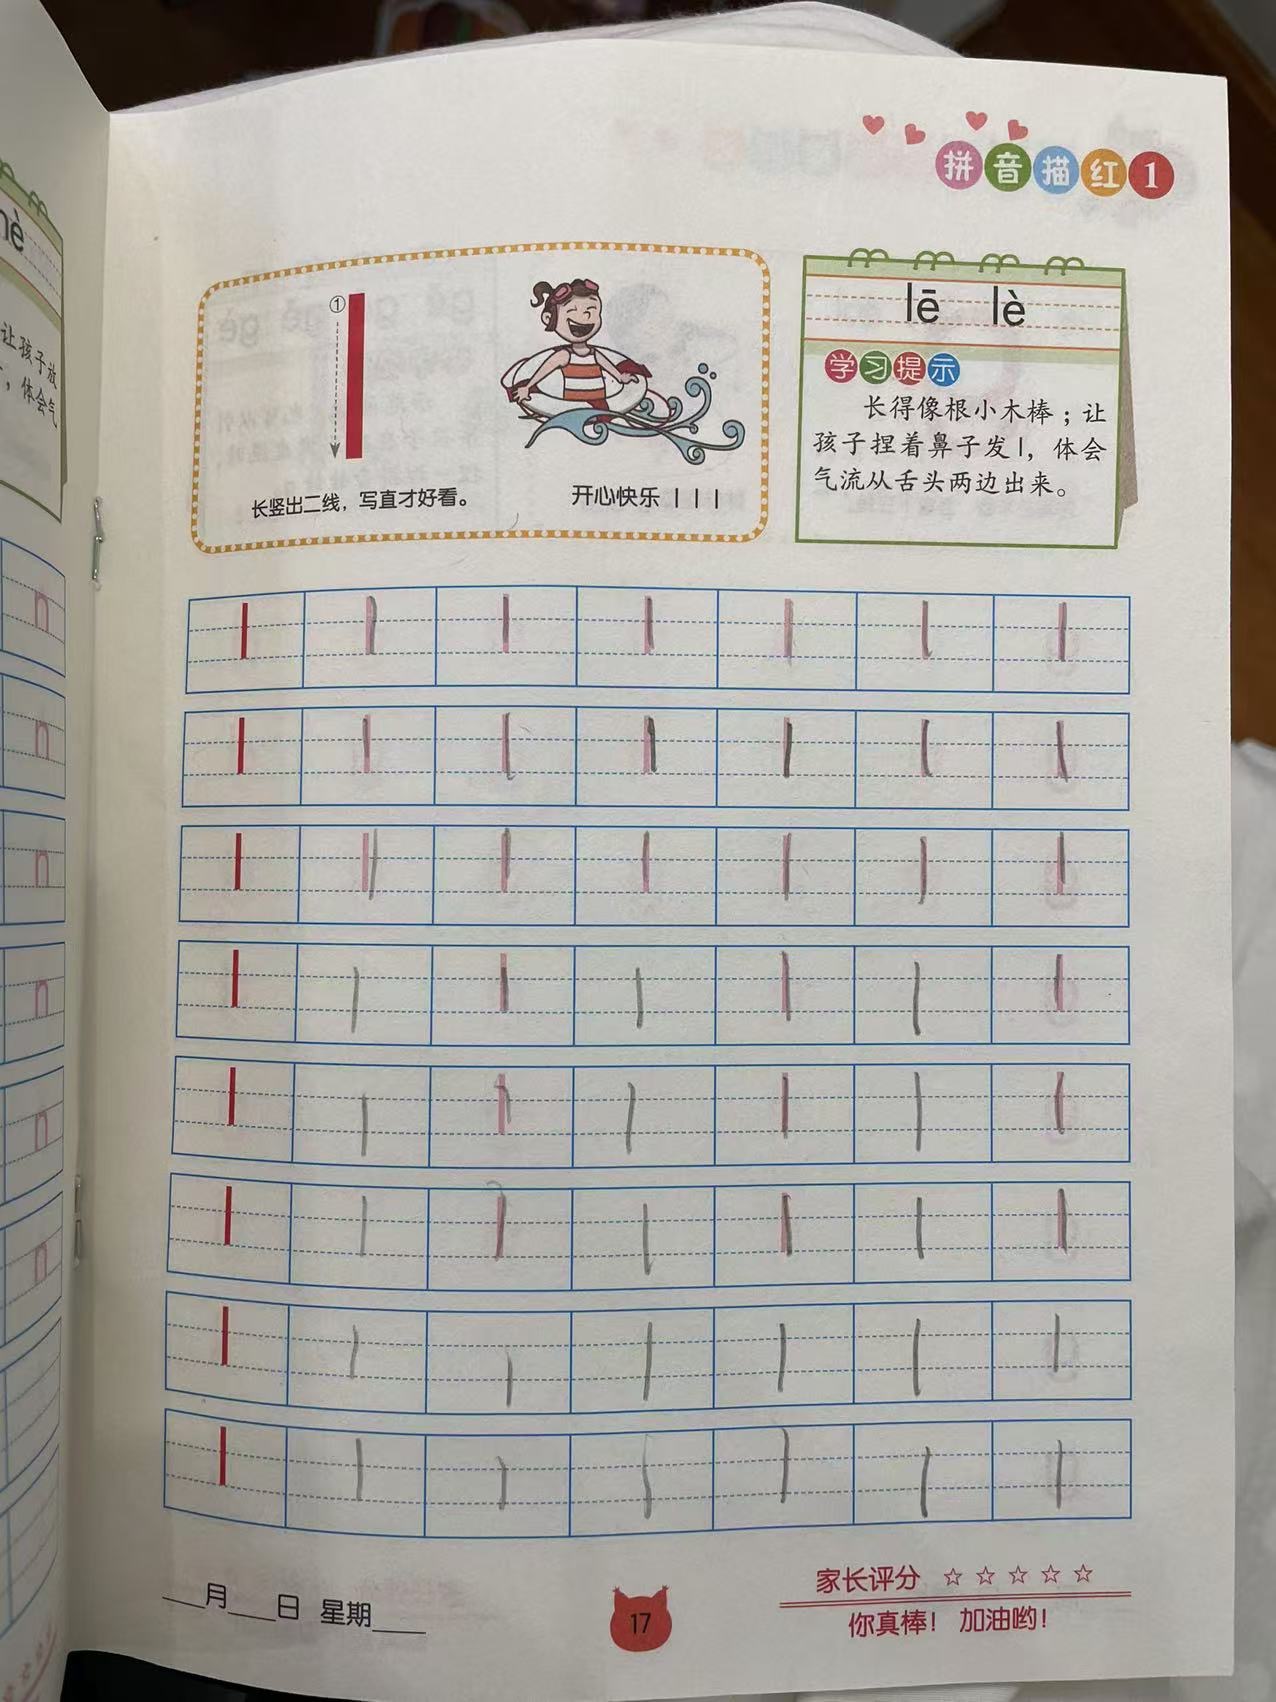 nè
让孩子放
，体会气
拼音描红1
①
长竖出二线，写直才好看。
开心快乐 l l l
lē lè
学习提示
长得像根小木棒；让
孩子捏着鼻子发l，体会
气流从舌头两边出来。
n
n
n
n
n
n
l l l l l l l
l l l l l l l
l l l l l l l
l l l l l l l
l l l l l l l
l l l l l l l
l l l l l l l
l l l l l l l
____月____日 星期____
17
家长评分 ☆☆☆☆☆
你真棒！ 加油哟！